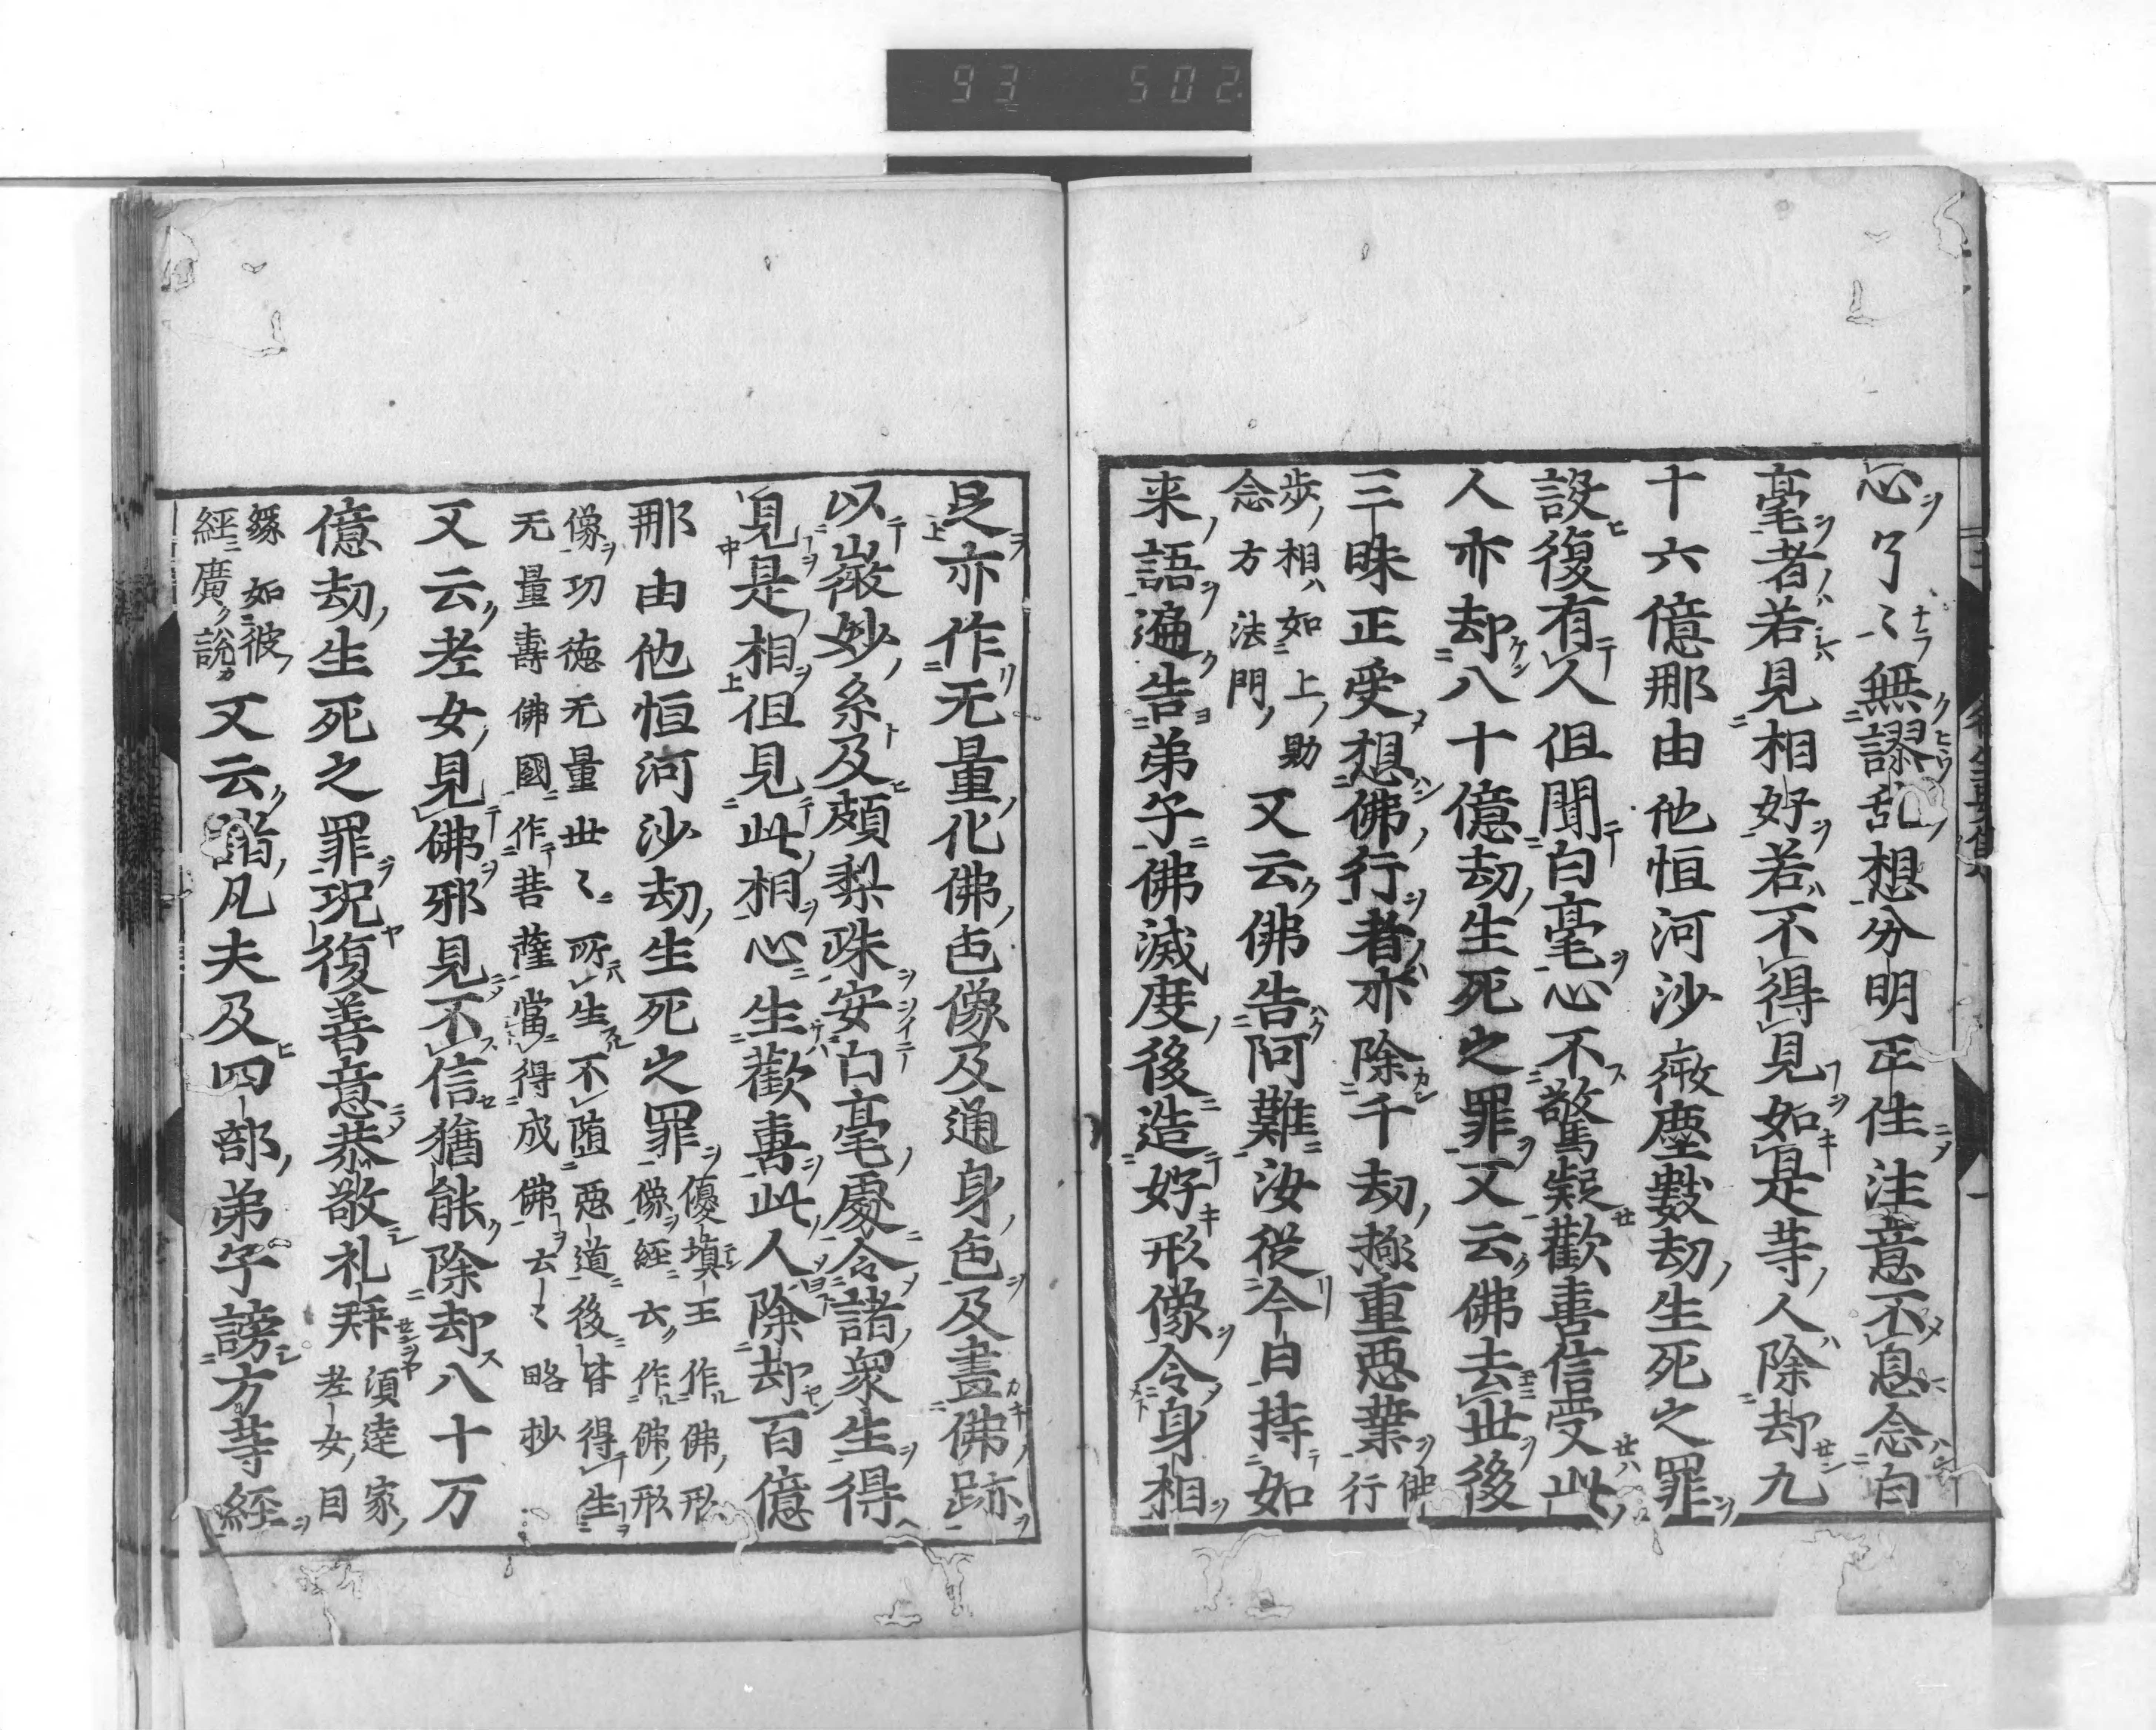 93 502
心了〻無謬乱想分明正住注意不息念白
毫者若見相好若不得見如是䒭人除却九
十六億那由他恒河沙微塵數劫生死之罪
設復有人但聞白毫心不驚疑歡喜信受此
人亦却八十億劫生死之罪又云佛去世後
三昧正受想佛行者亦除千劫極重惡業佛行
步相如上助
念方法門又云佛告阿難汝從今日持如
来語遍告弟子佛滅度後造好形像令身相
𠯁亦作无量化佛色像及通身色及畫佛跡
以微妙糸及頗梨珠安白毫處令諸衆生得
見是相但見此相心生歡喜此人除却百億
那由他恒河沙劫生死之罪優塡王作佛形
像經云作佛形
像功德无量世〻所生不墮惡道後皆得生
无量壽佛國作菩薩當得成佛云〻略抄
又云老女見佛邪見不信猶能除却八十万
億劫生死之罪況復善意恭敬礼拜須達家
老女因
緣如彼
經廣說又云諸凡夫及四部弟子謗方䒭經